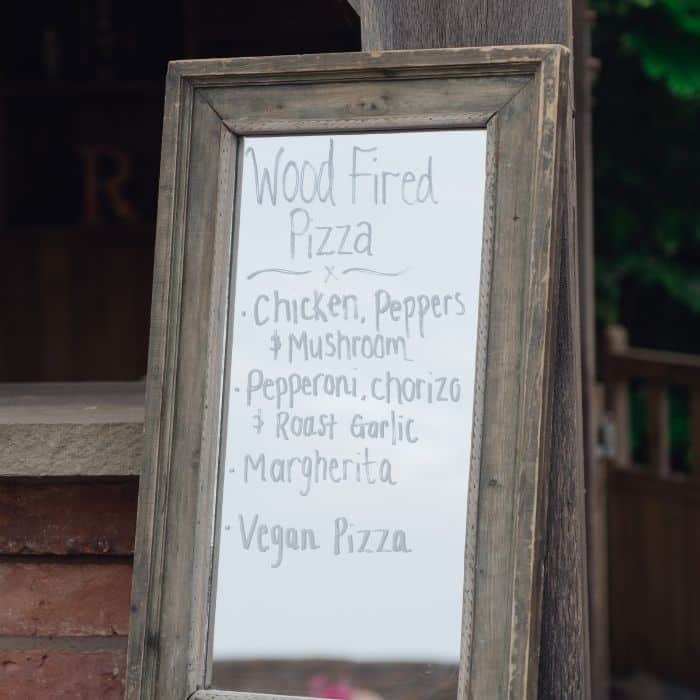 R
Wood Fired
Pizza
x
· Chicken, Peppers
& Mushroom
· Pepperoni, chorizo
& Roast Garlic
· Margherita
· Vegan Pizza